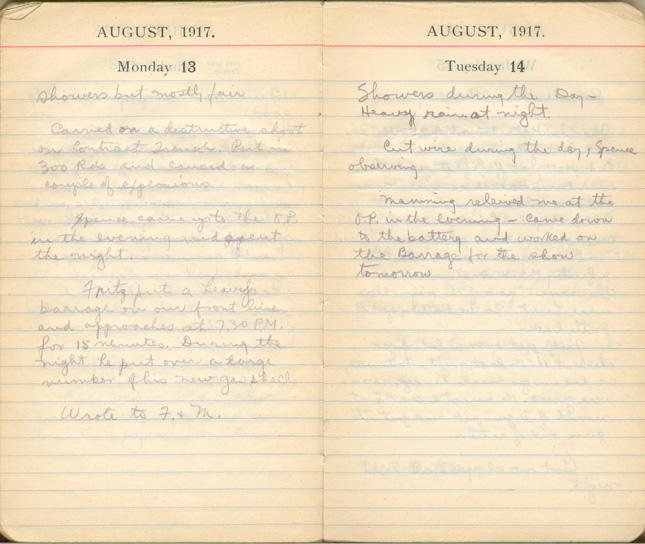 AUGUST, 1917.
Monday 13
Showers but mostly fair
Carried on a destructive shoot
on Contract Trench. Put in
300 Rds and caused a
couple of explosions
Spence came up to the O.P.
in the evening and spent
the night.
Fritz put a heavy
barrage on our front line
and approaches at 7.30 PM.
for 15 minutes. During the
night he put over a large
number of his new gas shell
Wrote to F. & M.
AUGUST, 1917.
Tuesday 14
Showers during the Day –
Heavy rain at night.
Cut wire during the day, Spence
observing
Manning relieved me at the
O.P. in the evening – Came down
to the battery and worked on
the Barrage for the show
tomorrow